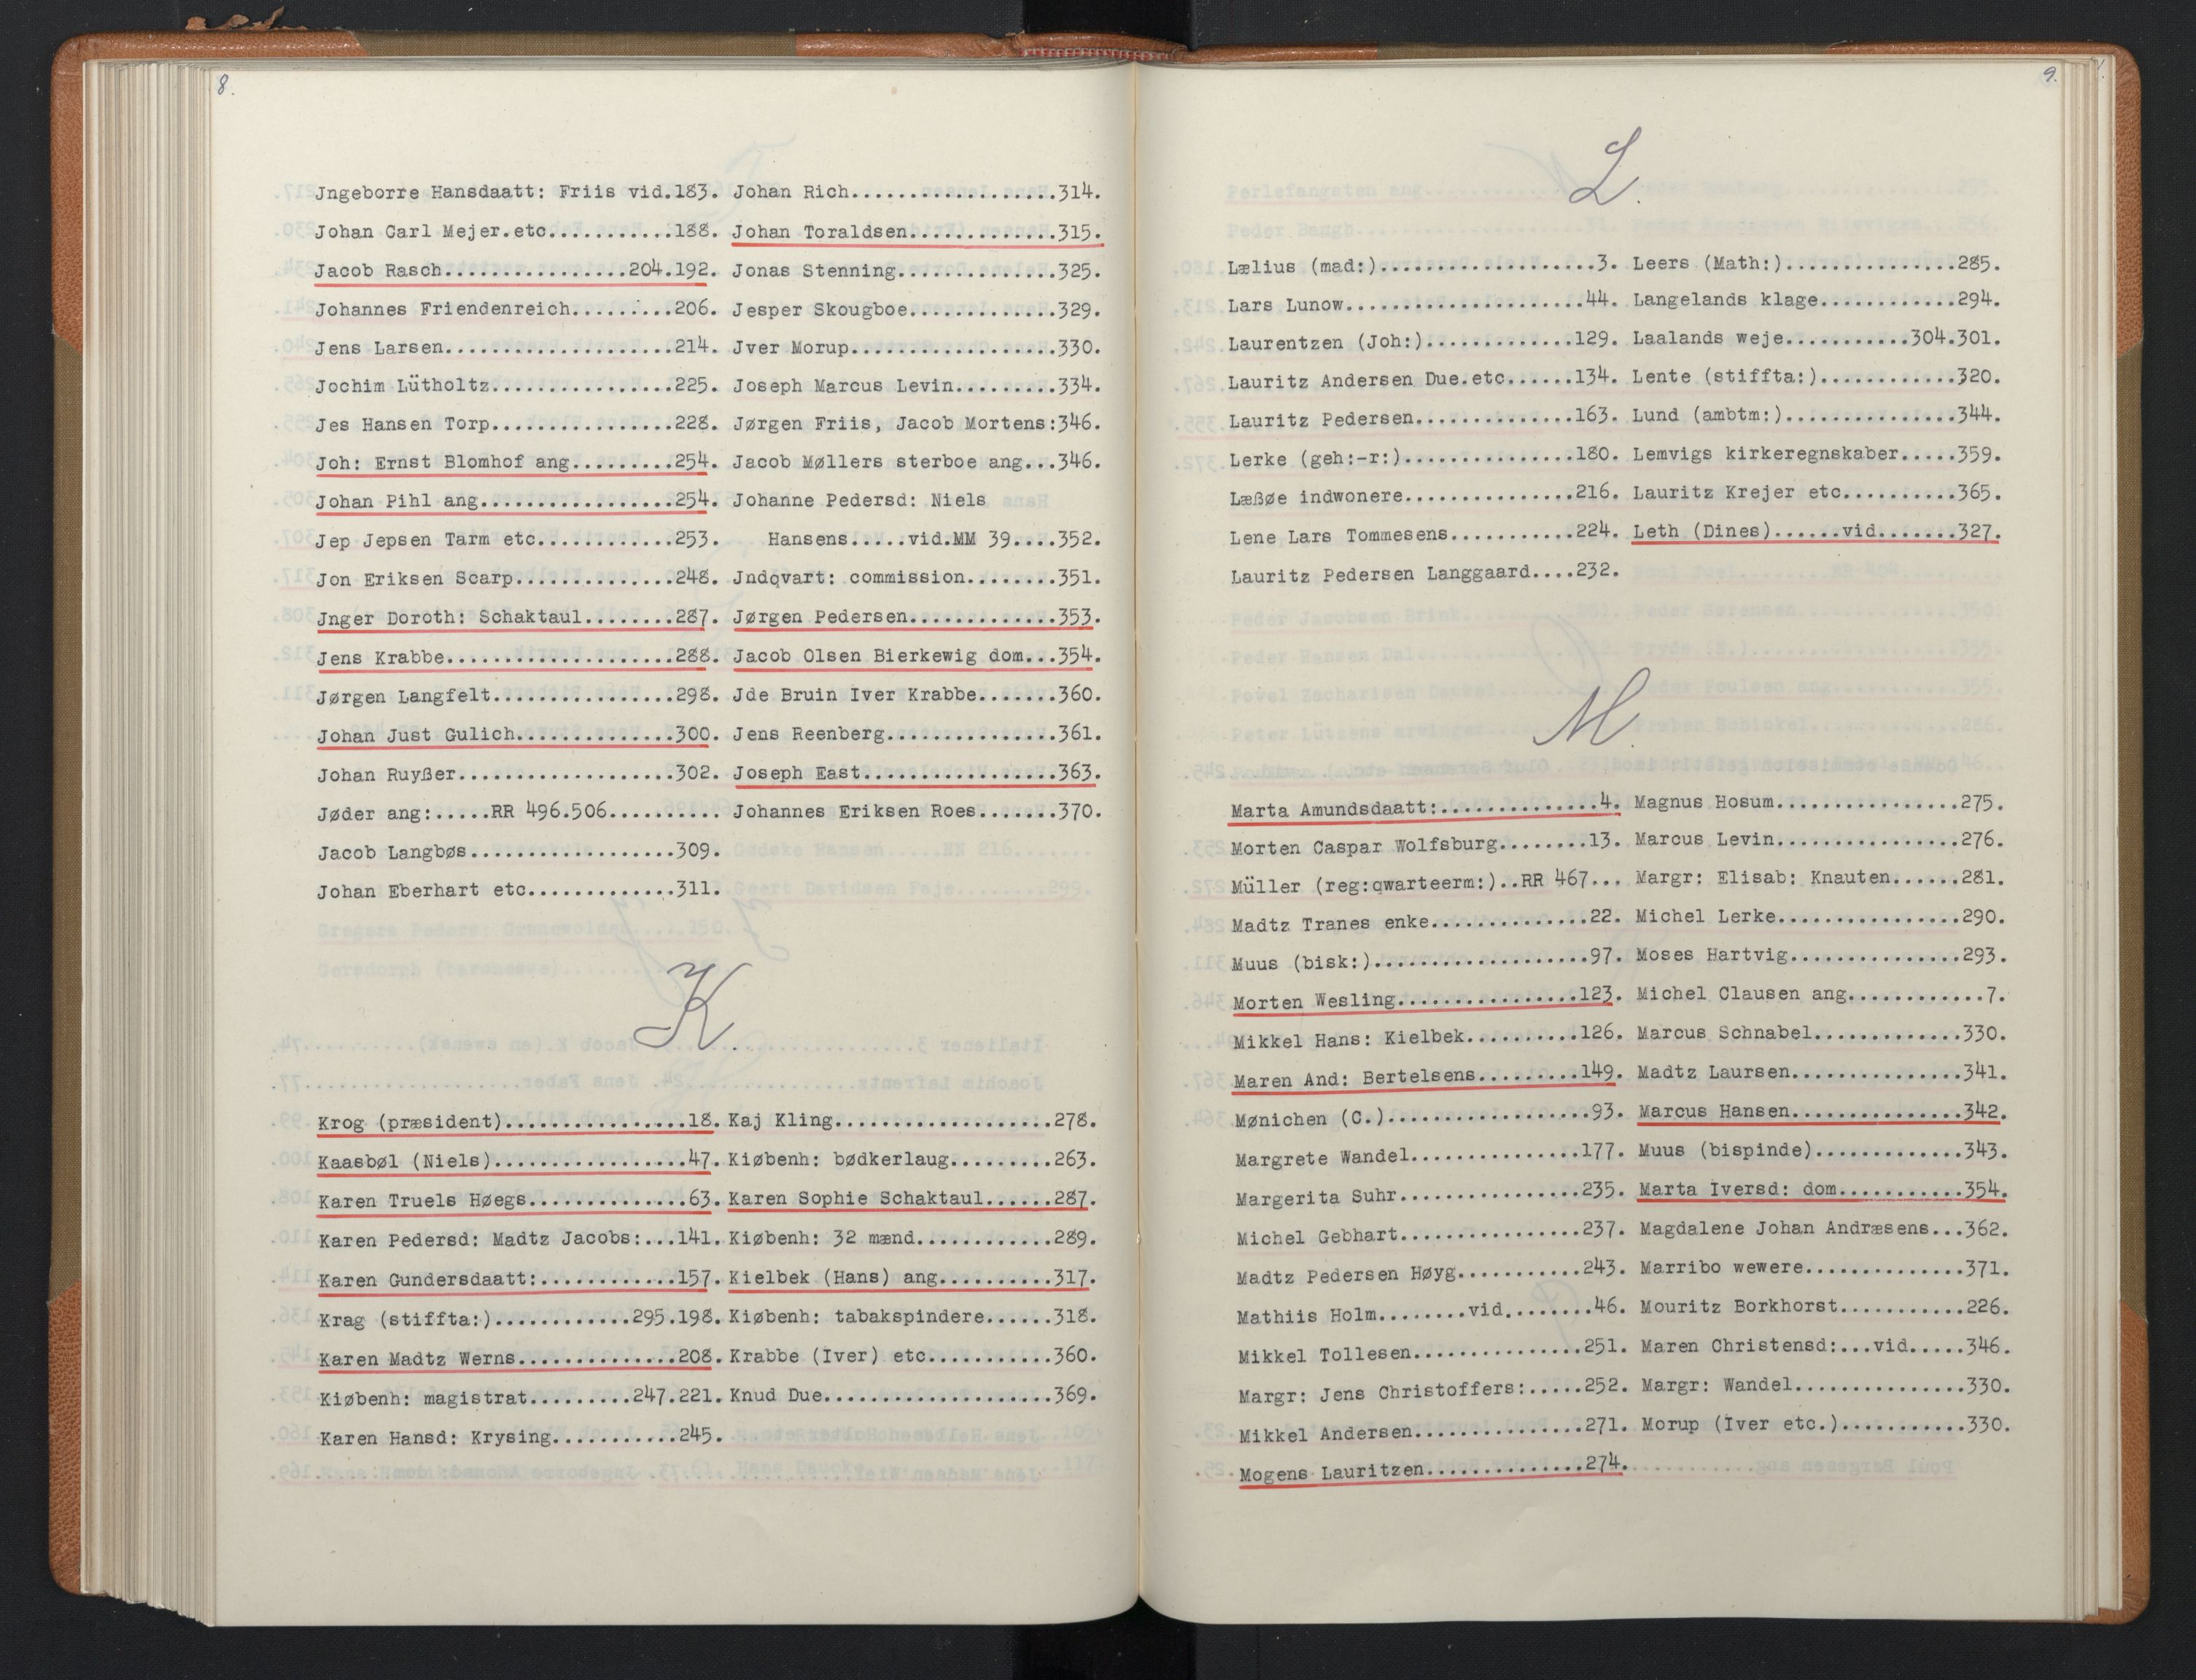 8.
Jngeborre Hansdaatt: Friis vid.183.
Johan Carl Mejer.etc...........188.
Jacob Rasch................204.192.
Johannes Friendenreich.........206.
Jens Larsen....................214.
Jochim Lütholtz................225.
Jes Hansen Torp................228.
Joh: Ernst Blomhof ang.........254.
Johan Pihl ang.................254.
Jep Jepsen Tarm etc............253.
Jon Eriksen Scarp..............248.
Jnger Doroth: Schaktaul........287.
Jens Krabbe....................288.
Jørgen Langfelt................298.
Johan Just Gulich..............300.
Johan Ruyßer...................302.
Jøder ang:.....RR 496.506..........
Jacob Langbøs..................309.
Johan Eberhart etc.............311.
Johan Rich..................314.
Johan Toraldsen.............315.
Jonas Stenning..............325.
Jesper Skougboe.............329.
Jver Morup..................330.
Joseph Marcus Levin.........334.
Jørgen Friis, Jacob Mortens:346.
Jacob Møllers sterboe ang...346.
Johanne Pedersd: Niels
Hansens.....vid.MM 39....352.
Jndqvart: commission........351.
Jørgen Pedersen.............353.
Jacob Olsen Bierkewig dom...354.
Jde Bruin Iver Krabbe.......360.
Jens Reenberg...............361.
Joseph East.................363.
Johannes Eriksen Roes.......370.
K.
Krog (præsident)................18.
Kaasbøl (Niels).................47.
Karen Truels Høegs..............63.
Karen Pedersd: Madtz Jacobs:...141.
Karen Gundersdaatt:............157.
Krag (stiffta:)............295.198.
Karen Madtz Werns..............208.
Kiøbenh: magistrat.........247.221.
Karen Hansd: Krysing...........245.
Kaj Kling...................278.
Kiøbenh: bødkerlaug.........263.
Karen Sophie Schaktaul......287.
Kiøbenh: 32 mænd............289.
Kielbek (Hans) ang..........317.
Kiøbenh: tabakspindere......318.
Krabbe (Iver) etc...........360.
Knud Due....................369.
9.
L.
Lælius (mad:)...................3.
Lars Lunow.....................44.
Laurentzen (Joh:).............129.
Lauritz Andersen Due.etc......134.
Lauritz Pedersen..............163.
Lerke (geh:-r:)...............180.
Læßøe indwonere...............216.
Lene Lars Tommesens...........224.
Lauritz Pedersen Langgaard....232.
Leers (Math:)...............285.
Langelands klage............294.
Laalands weje...........304.301.
Lente (stiffta:)............320.
Lund (ambtm:)...............344.
Lemvigs kirkeregnskaber.....359.
Lauritz Krejer etc..........365.
Leth (Dines)......vid.......327.
M.
Marta Amundsdaatt:..............4.
Morten Caspar Wolfsburg........13.
Müller (reg:qwarteerm:)..RR 467...
Madtz Tranes enke..............22.
Muus (bisk:)...................97.
Morten Wesling................123.
Mikkel Hans: Kielbek..........126.
Maren And: Bertelsens.........149.
Mønichen (C.)..................93.
Margrete Wandel...............177.
Margerita Suhr................235.
Michel Gebhart................237.
Madtz Pedersen Høyg...........243.
Mathiis Holm........vid........46.
Mikkel Tollesen...............251.
Margr: Jens Christoffers:.....252.
Mikkel Andersen...............271.
Mogens Lauritzen..............274.
Magnus Hosum................275.
Marcus Levin................276.
Margr: Elisab: Knauten......281.
Michel Lerke................290.
Moses Hartvig...............293.
Michel Clausen ang............7.
Marcus Schnabel.............330.
Madtz Laursen...............341.
Marcus Hansen...............342.
Muus (bispinde).............343.
Marta Iversd: dom...........354.
Magdalene Johan Andræsens...362.
Marribo wewere..............371.
Mouritz Borkhorst...........226.
Maren Christensd:...vid.....346.
Margr: Wandel...............330.
Morup (Iver etc.)...........330.